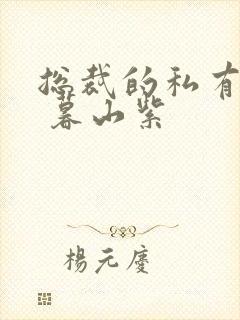 总裁的私有
暮山紫
楊元慶